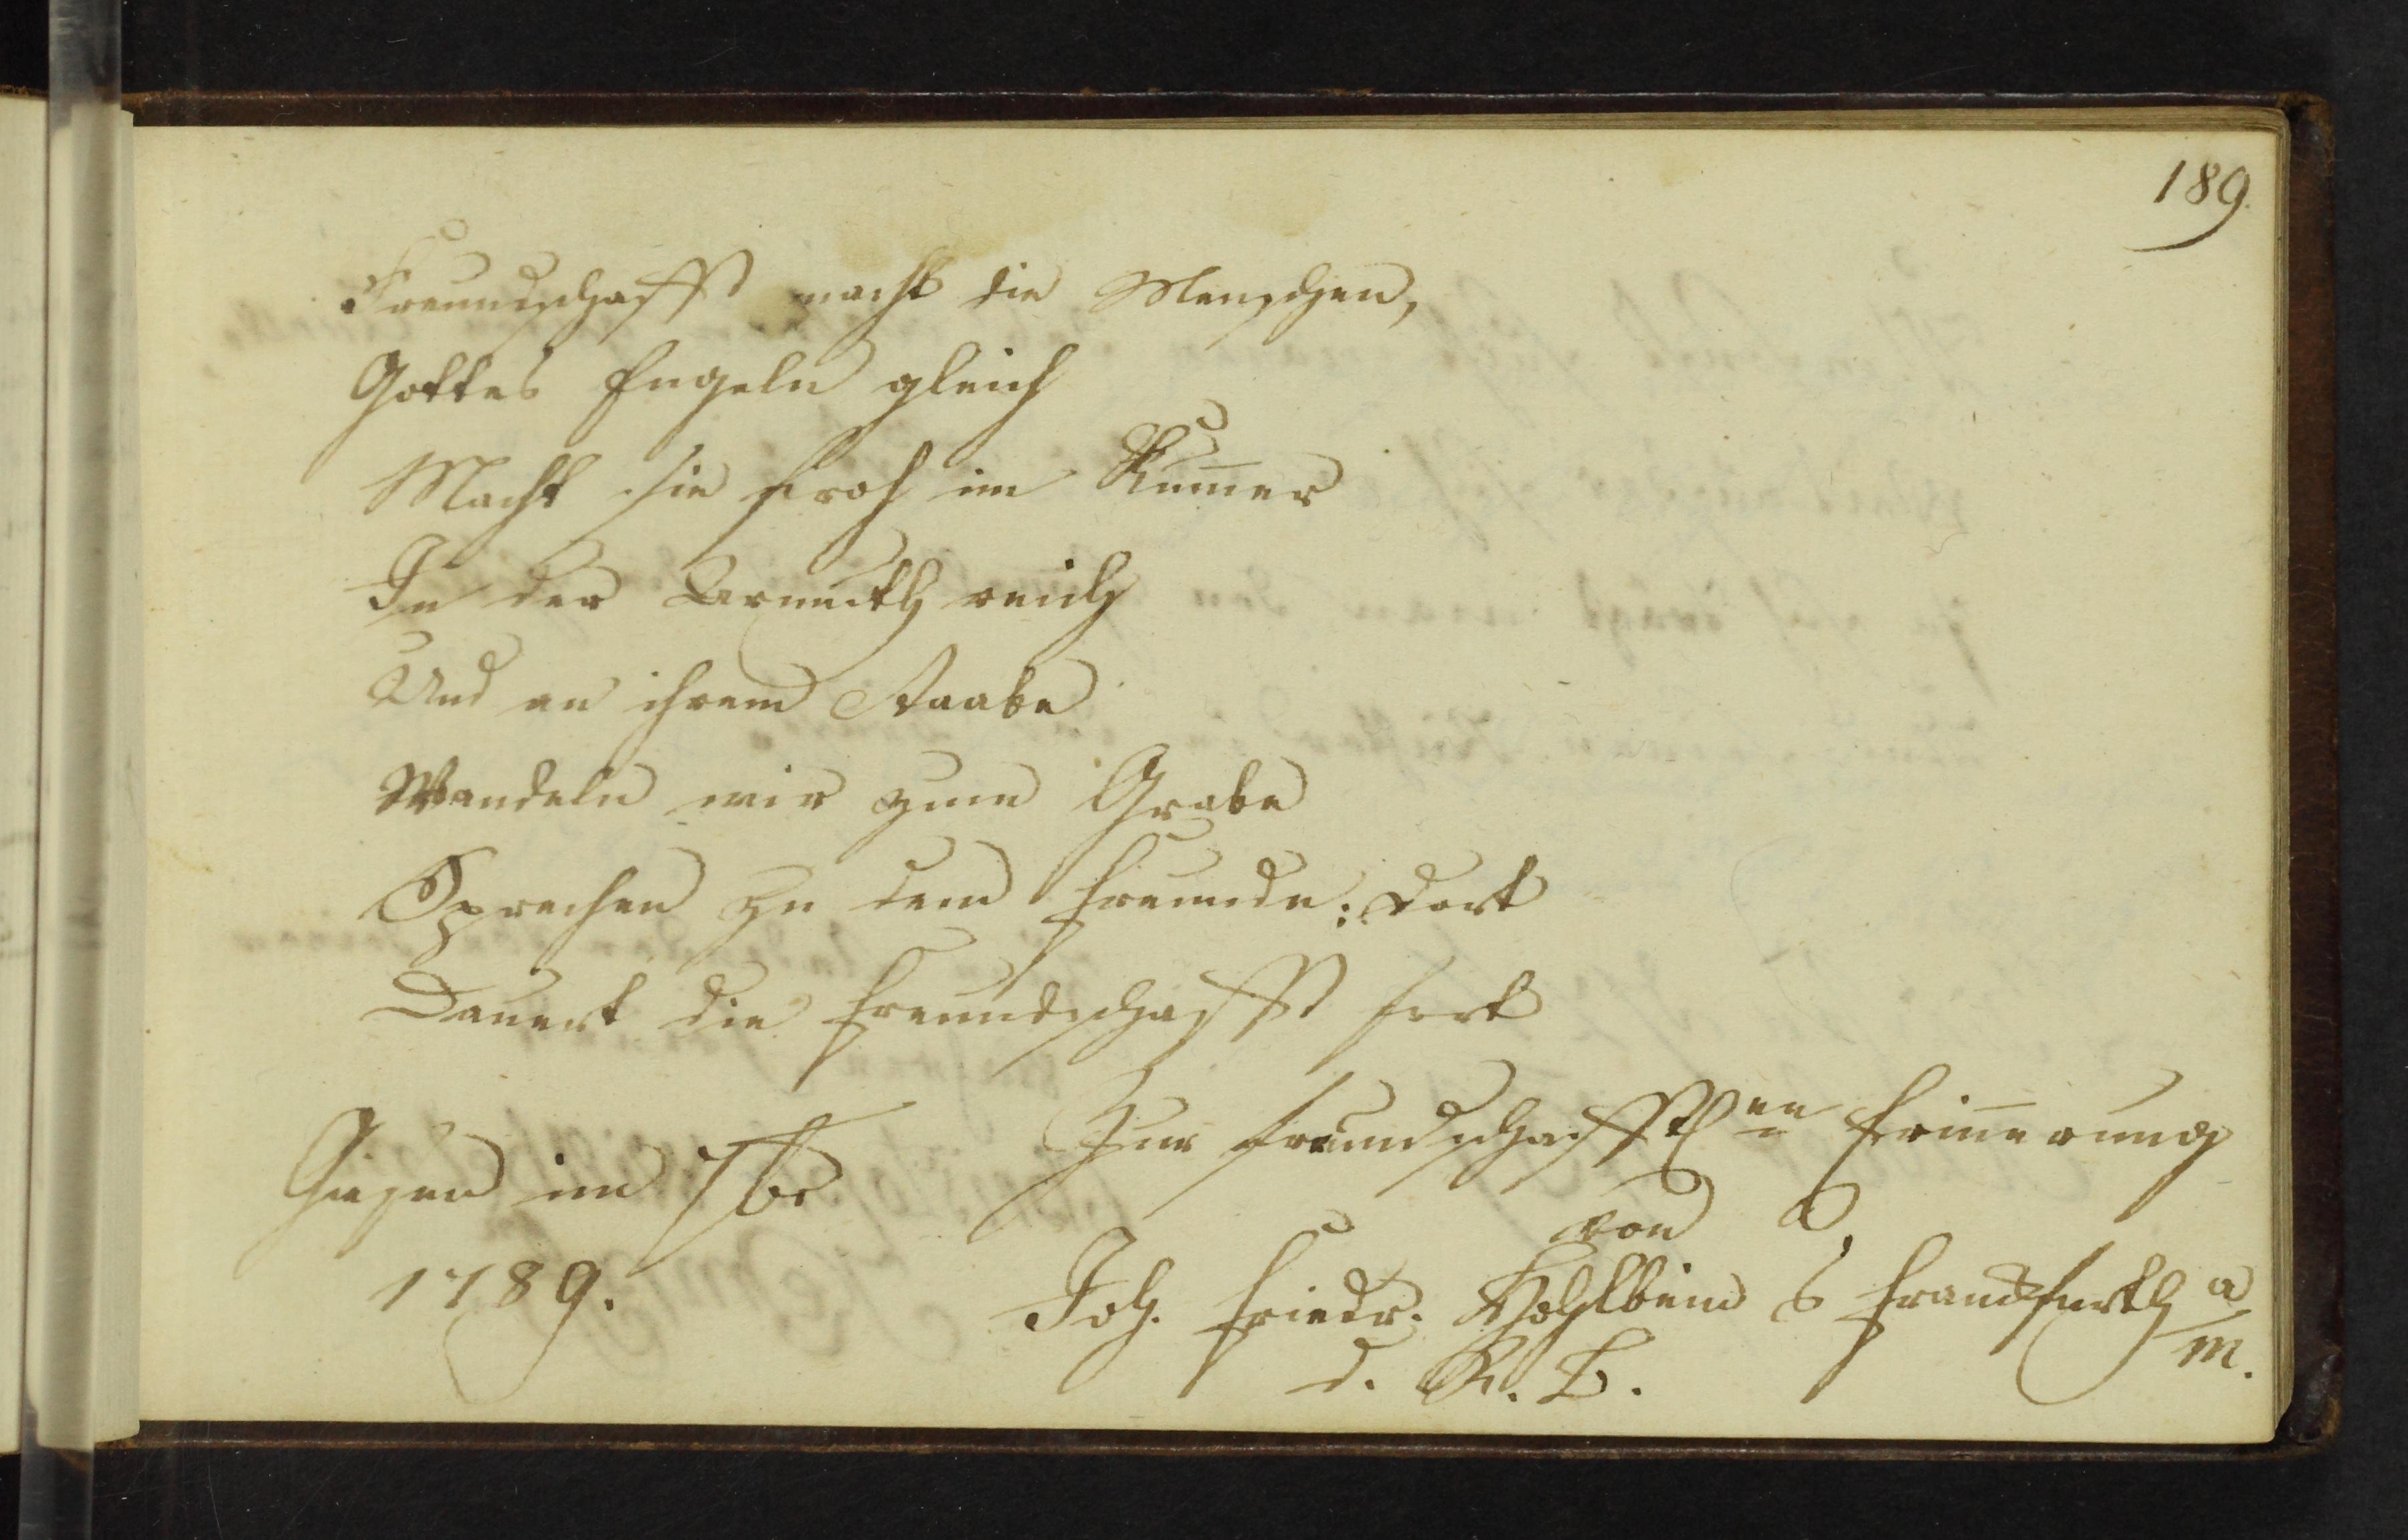 189.
Freundschafft macht die Menschen,
Gottes Engeln gleich
Macht sie froh im Kum̅er
In der Armuth reich
Und an ihrem Staabe
Wandeln wir zum Grabe
Sprechen zu dem Freunde: dort
Dauert die Freundschafft fort
Giesen im 7br
1789.
Zur freundschafftlen Erin̅erung
von
Joh. Friedr. Hohlbein Franckfurth a/m.
d. R. B.